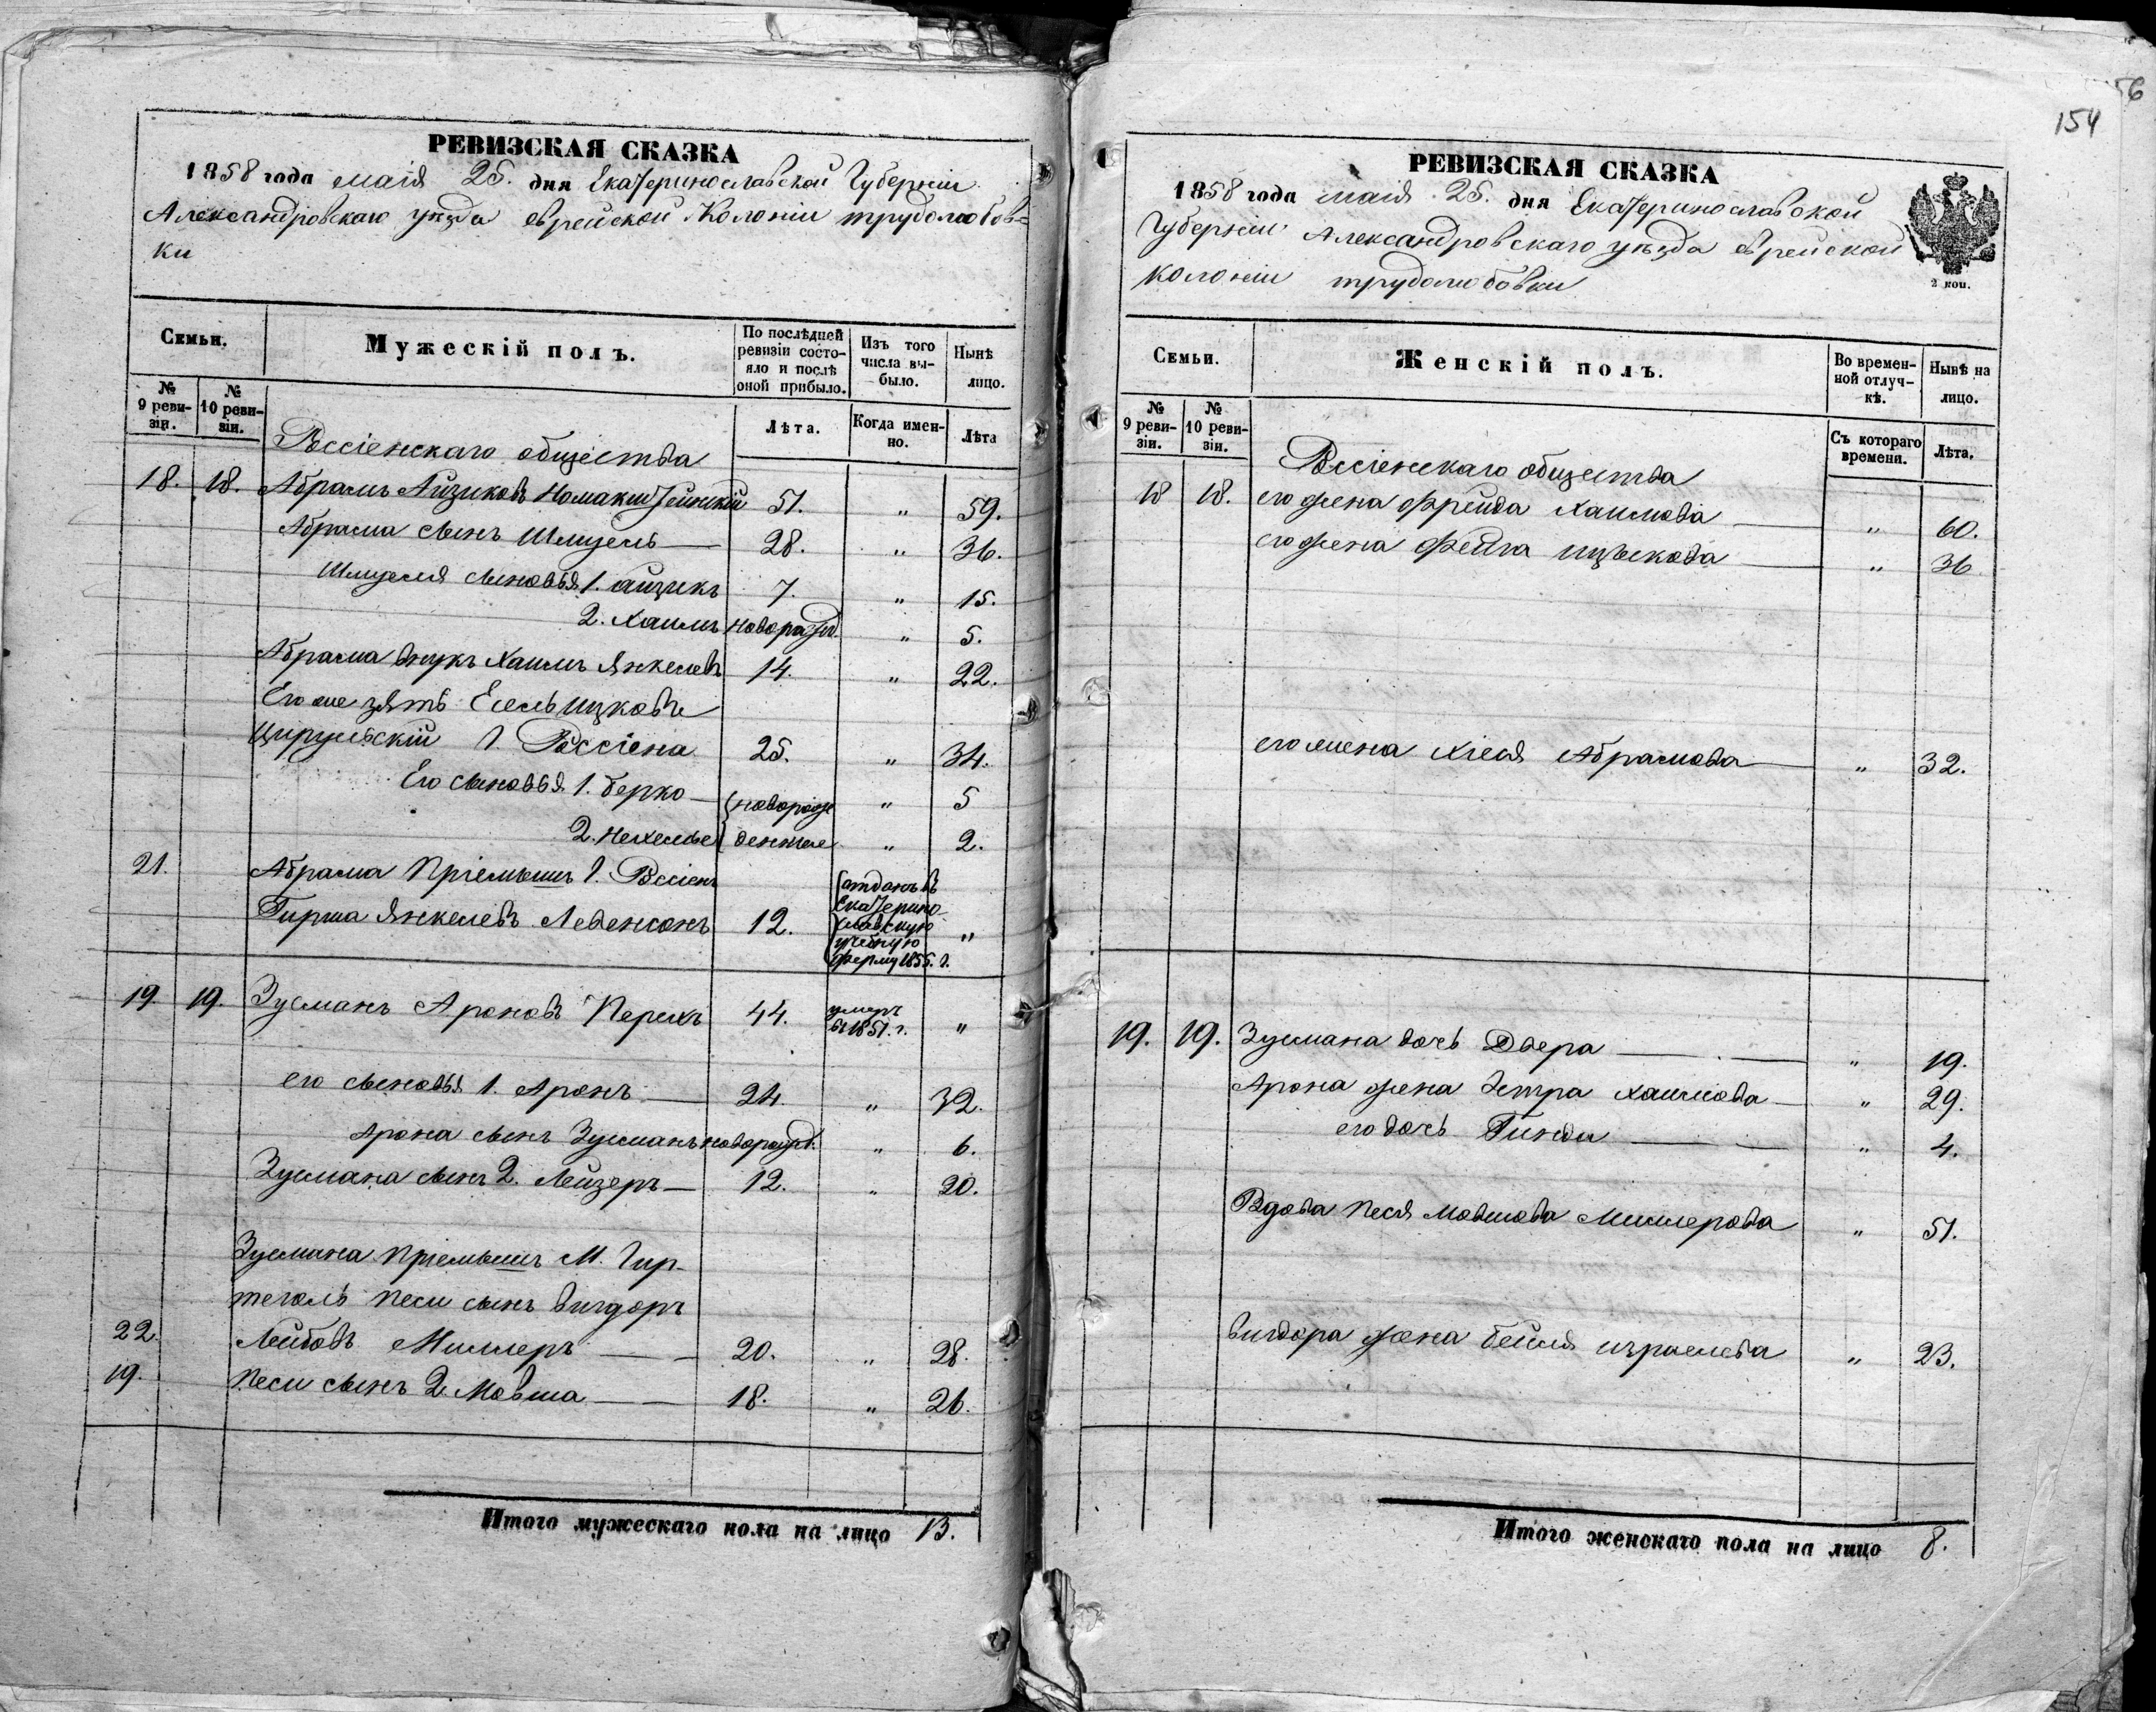 РЕВИЗСКАЯ СКАЗКА
1858 года маія 25. дня Екатеринославской Губерніи
Александровскаго уѣзда еврейской Колоніи трудолюбов=
ки
Семьи.
Мужескій полъ.
По послѣдней ревизіи состояло и послѣ оной прибыло.
Изъ того числа выбыло.
Нынѣ лицо.
№ 9 ревизіи.
№ 10 ревизіи.
Лѣта.
Когда именно.
Лѣта
Россіенскаго общества
18. 18. Абрамъ Айзиковъ 51. " 59.
Абрама сынъ Шмуель 28. " 36.
Шмуеля сыновья 1. айзикъ 7. " 15.
2. Хаимъ новорожд. " 5.
Абрама внукъ Хаимъ Янкелевъ 14. " 22.
Его же зять Есель ицковъ
Цирульскій Г. Россіена 25. " 34.
Его сыновья 1. берко новорож " 5
2. денные " 2.
21. Абрама Пріемышъ Г. Россіенъ
Гирша Янкелевъ Левенсонъ 12. отданъ въ Екатеринославскую учебную ферму 1855. г. "
19. 19. Зусманъ Ароновъ Перехъ 44. умеръ въ 1851. г. "
его сыновья 1. Аронъ 24. " 32.
Арона сынъ Зусманъ новорожд. " 6.
Зусмана сынъ 2. Лейзеръ 12. " 20.
Зусмана Пріемышъ М. Гир-
теголь Песи сынъ вигдоръ
22. Лейбовъ Миллеръ 20. " 28.
19. Песи сынъ 2. Мовша 18. " 26.
Итого мужескаго пола на лицо 13.
56
154
РЕВИЗСКАЯ СКАЗКА
1858 года маія 25. дня Екатеринославской
Губерніи Александровскаго уѣзда еврейской
колоніи трудолюбовки
2 коп.
Семьи.
Женскій полъ.
Во временной отлучкѣ.
Нынѣ на лицо.
№ 9 ревизіи.
№ 10 ревизіи.
Съ котораго времени.
Лѣта.
Россіенскаго общества
18 18. его жена Фрейда Хаимова " 60.
его жена Фейга ицькова " 36
его жена Хіена Абрамова " 32.
19. 19. Зусмана дочь Двера " 19.
Арона жена Эстра хаимова " 29.
его дочь Гинди " 4.
Вдова Песя Мовшова Миллерова " 51.
вигдора жена бейля израелева " 23.
Итого женскаго пола на лицо 8.